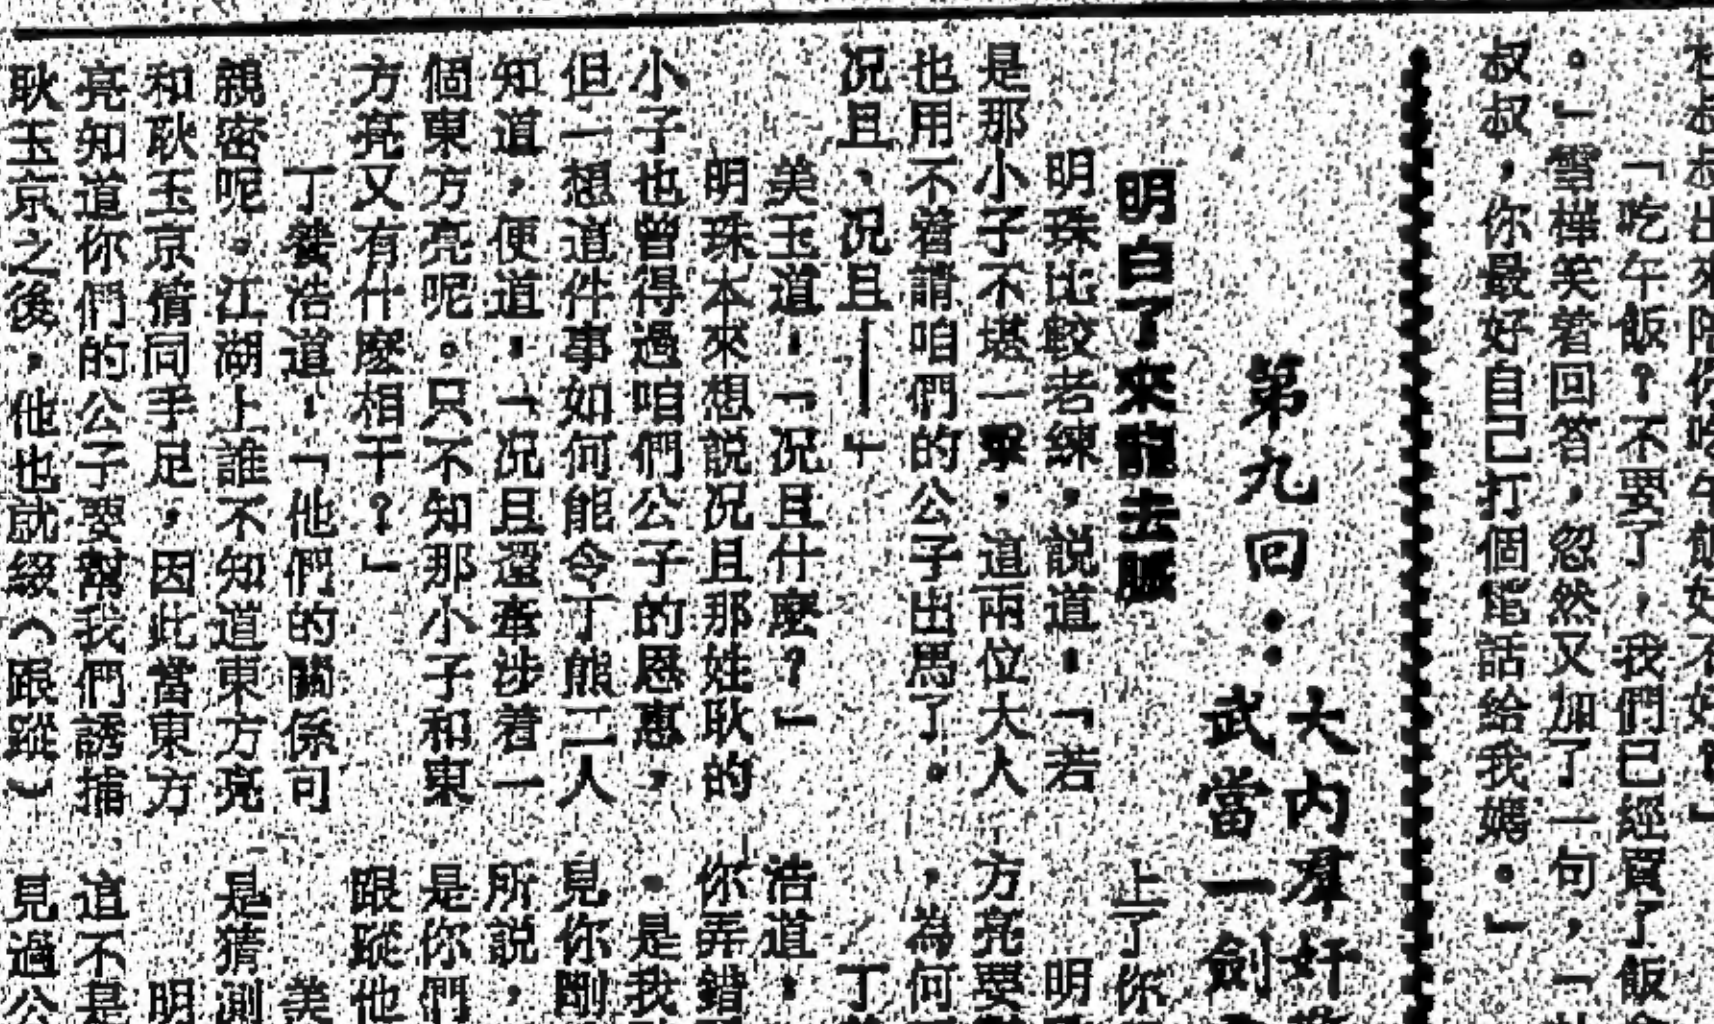 叔叔出來陪你吃午飯好不好
「吃午飯？不要了，我們已經買了飯
。」雪樺笑着回答，忽然又加了一句，「
叔叔，你最好自己打個電話給我媽。」
第九回：
大內羣奸
武當一劍
明白了來龍去脈
明珠比較老練，説道：「若
是那小子不堪一擊，這兩位大人
也用不着請咱們的公子出馬了。
况且、况且——」
美玉道：「况且什麼？」
明珠本來想説况且那姓耿的
小子也曾得過咱們公子的恩惠，
但一想這件事如何能令丁熊二人
知道，便道：「况且還牽涉着一
個東方亮呢。只不知那小子和東
方亮又有什麼相干？」
丁兆浩道：「他們的關係可
親密呢。江湖上誰不知道東方亮
和耿玉京情同手足，因此當東方
亮知道你們的公子要幫我們誘捕
耿玉京之後，他也就綴（跟蹤）
上了你
明
方亮要
，為何
丁
浩道：
你弄錯
。是我
見你剛
所説，
是你們
跟蹤他
美
是猜測
明
這不是
見過公